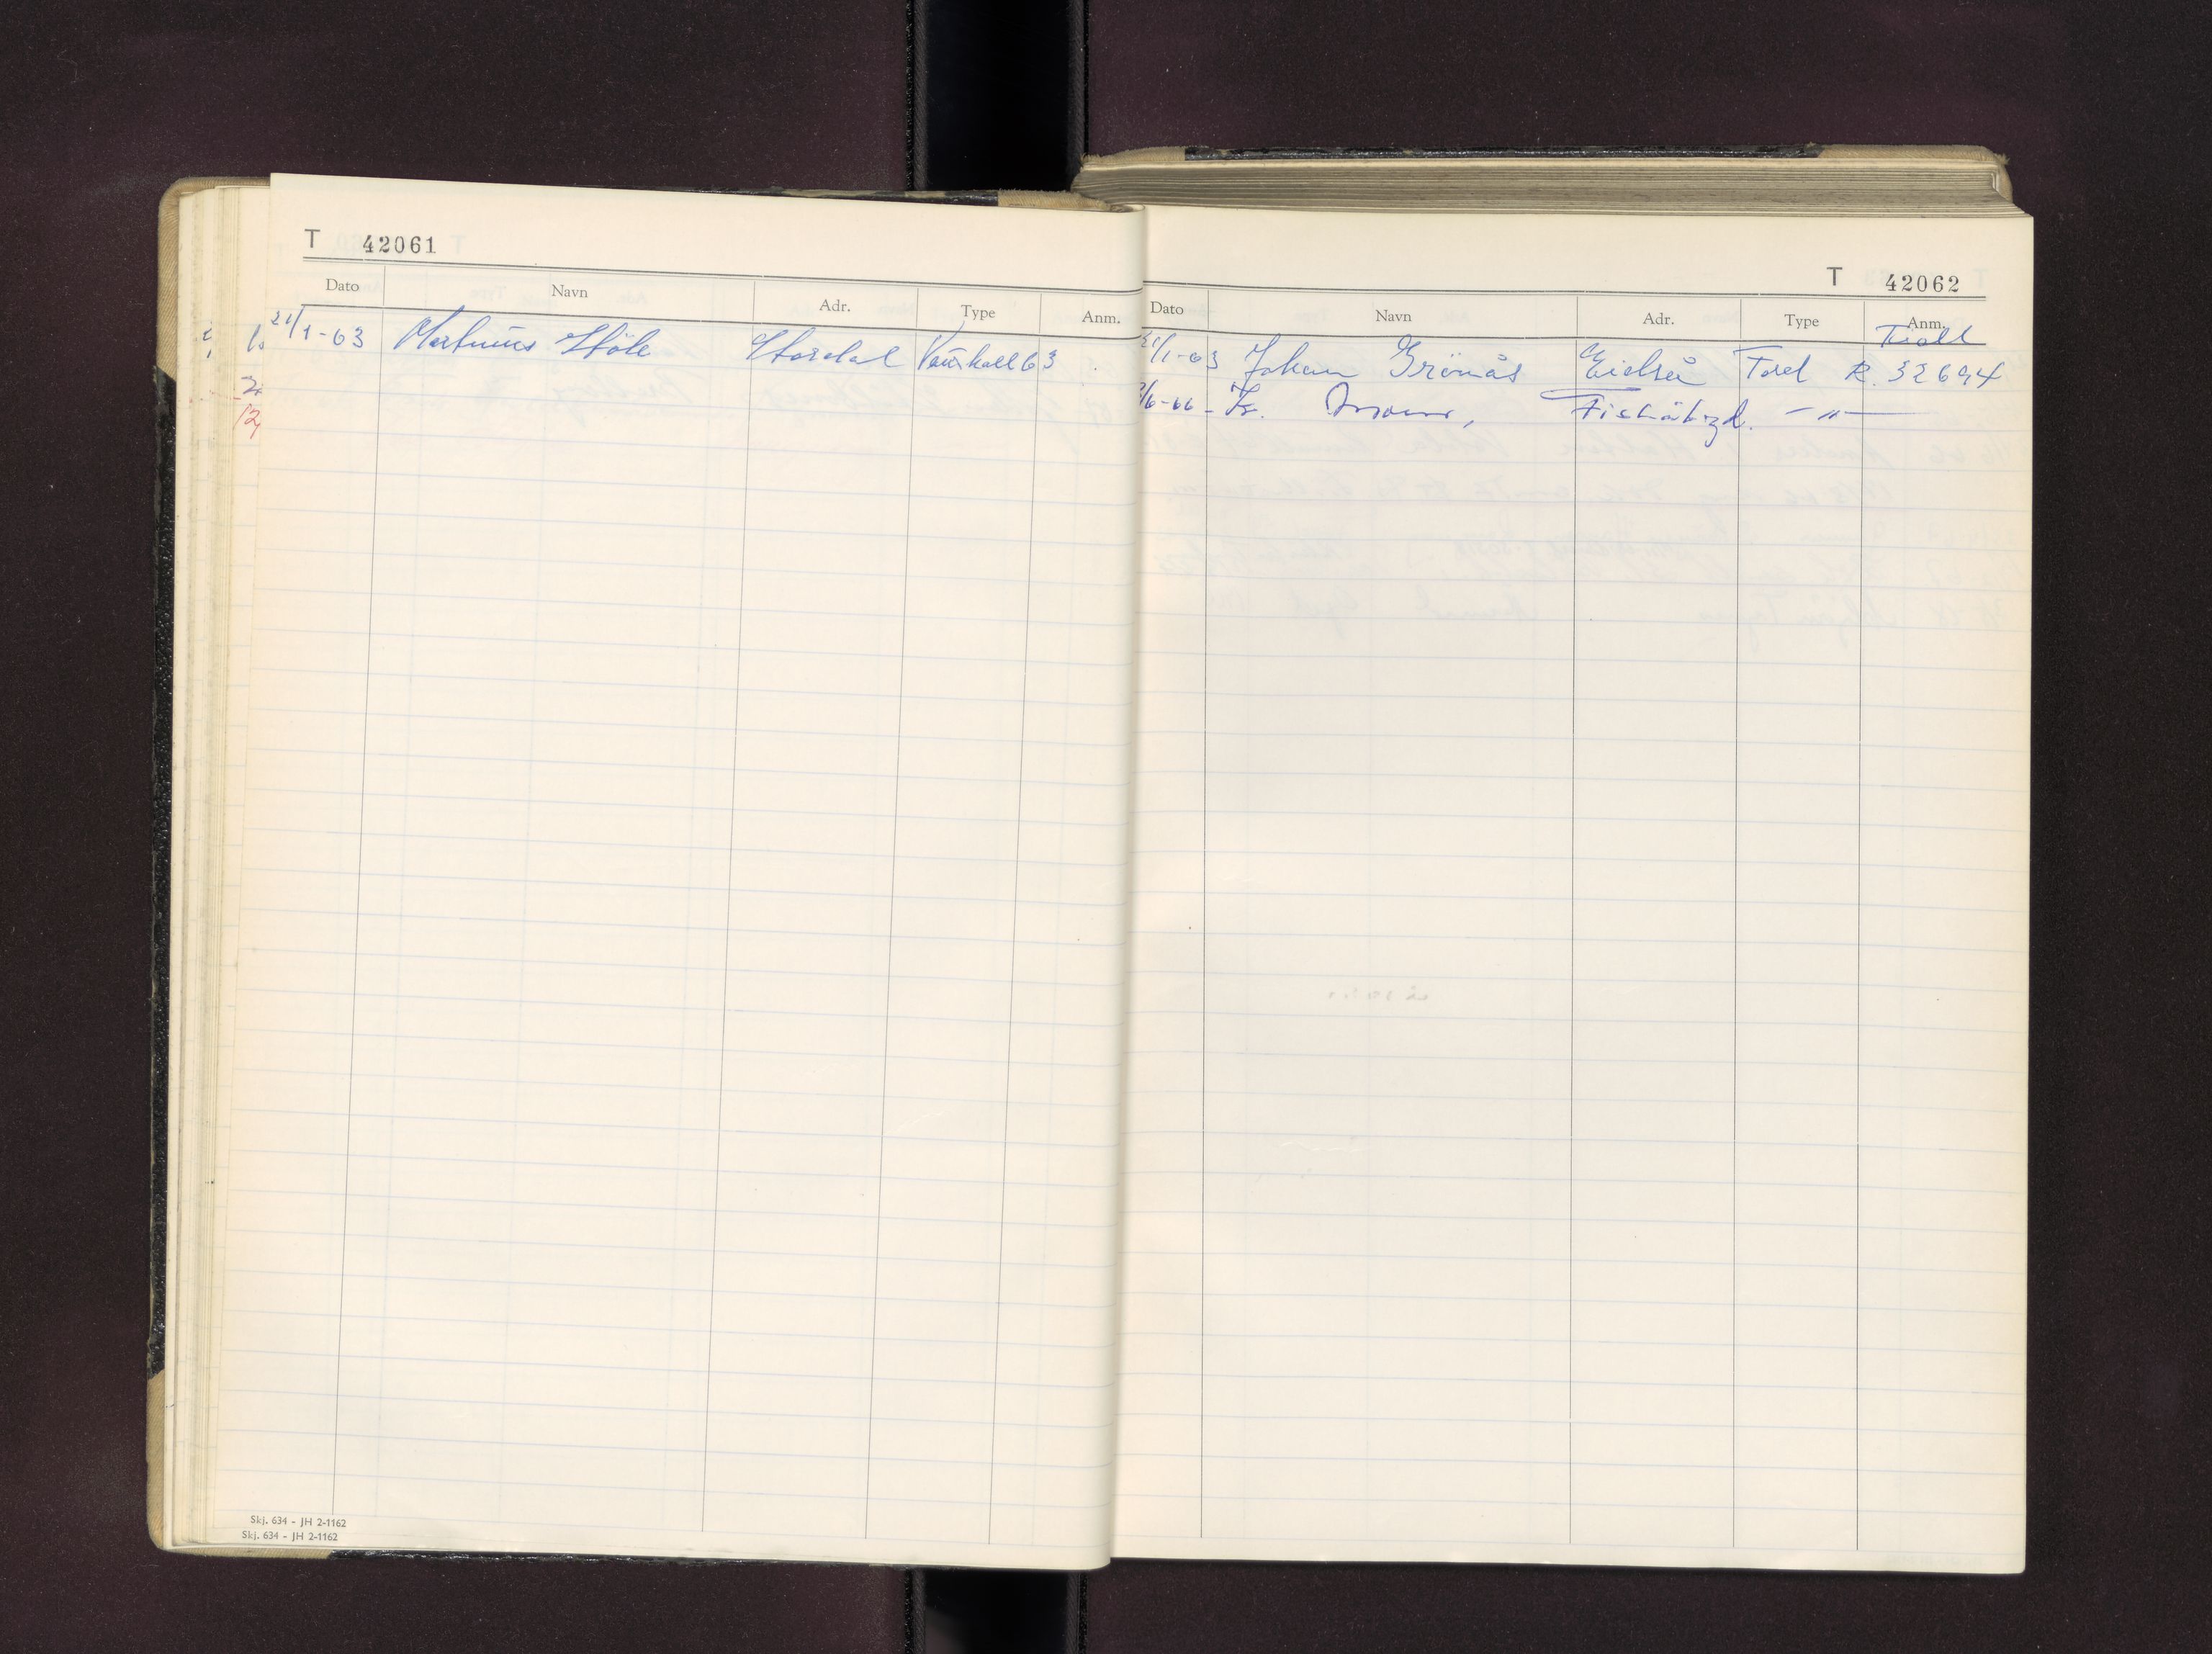 T 42061
Dato Navn Adr. Type Anm.
21/1-63 Martinus Støle Stordal Vauxhall 63
Skj. 634 - JH 2-1162
Skj. 634 - JH 2-1162
T 42062
Dato Navn Adr. Type Anm.
21/1-63 Johan Grönås Eidså Ford R. 32694
/6-66 - Fr. Fiskåbygd. - " -